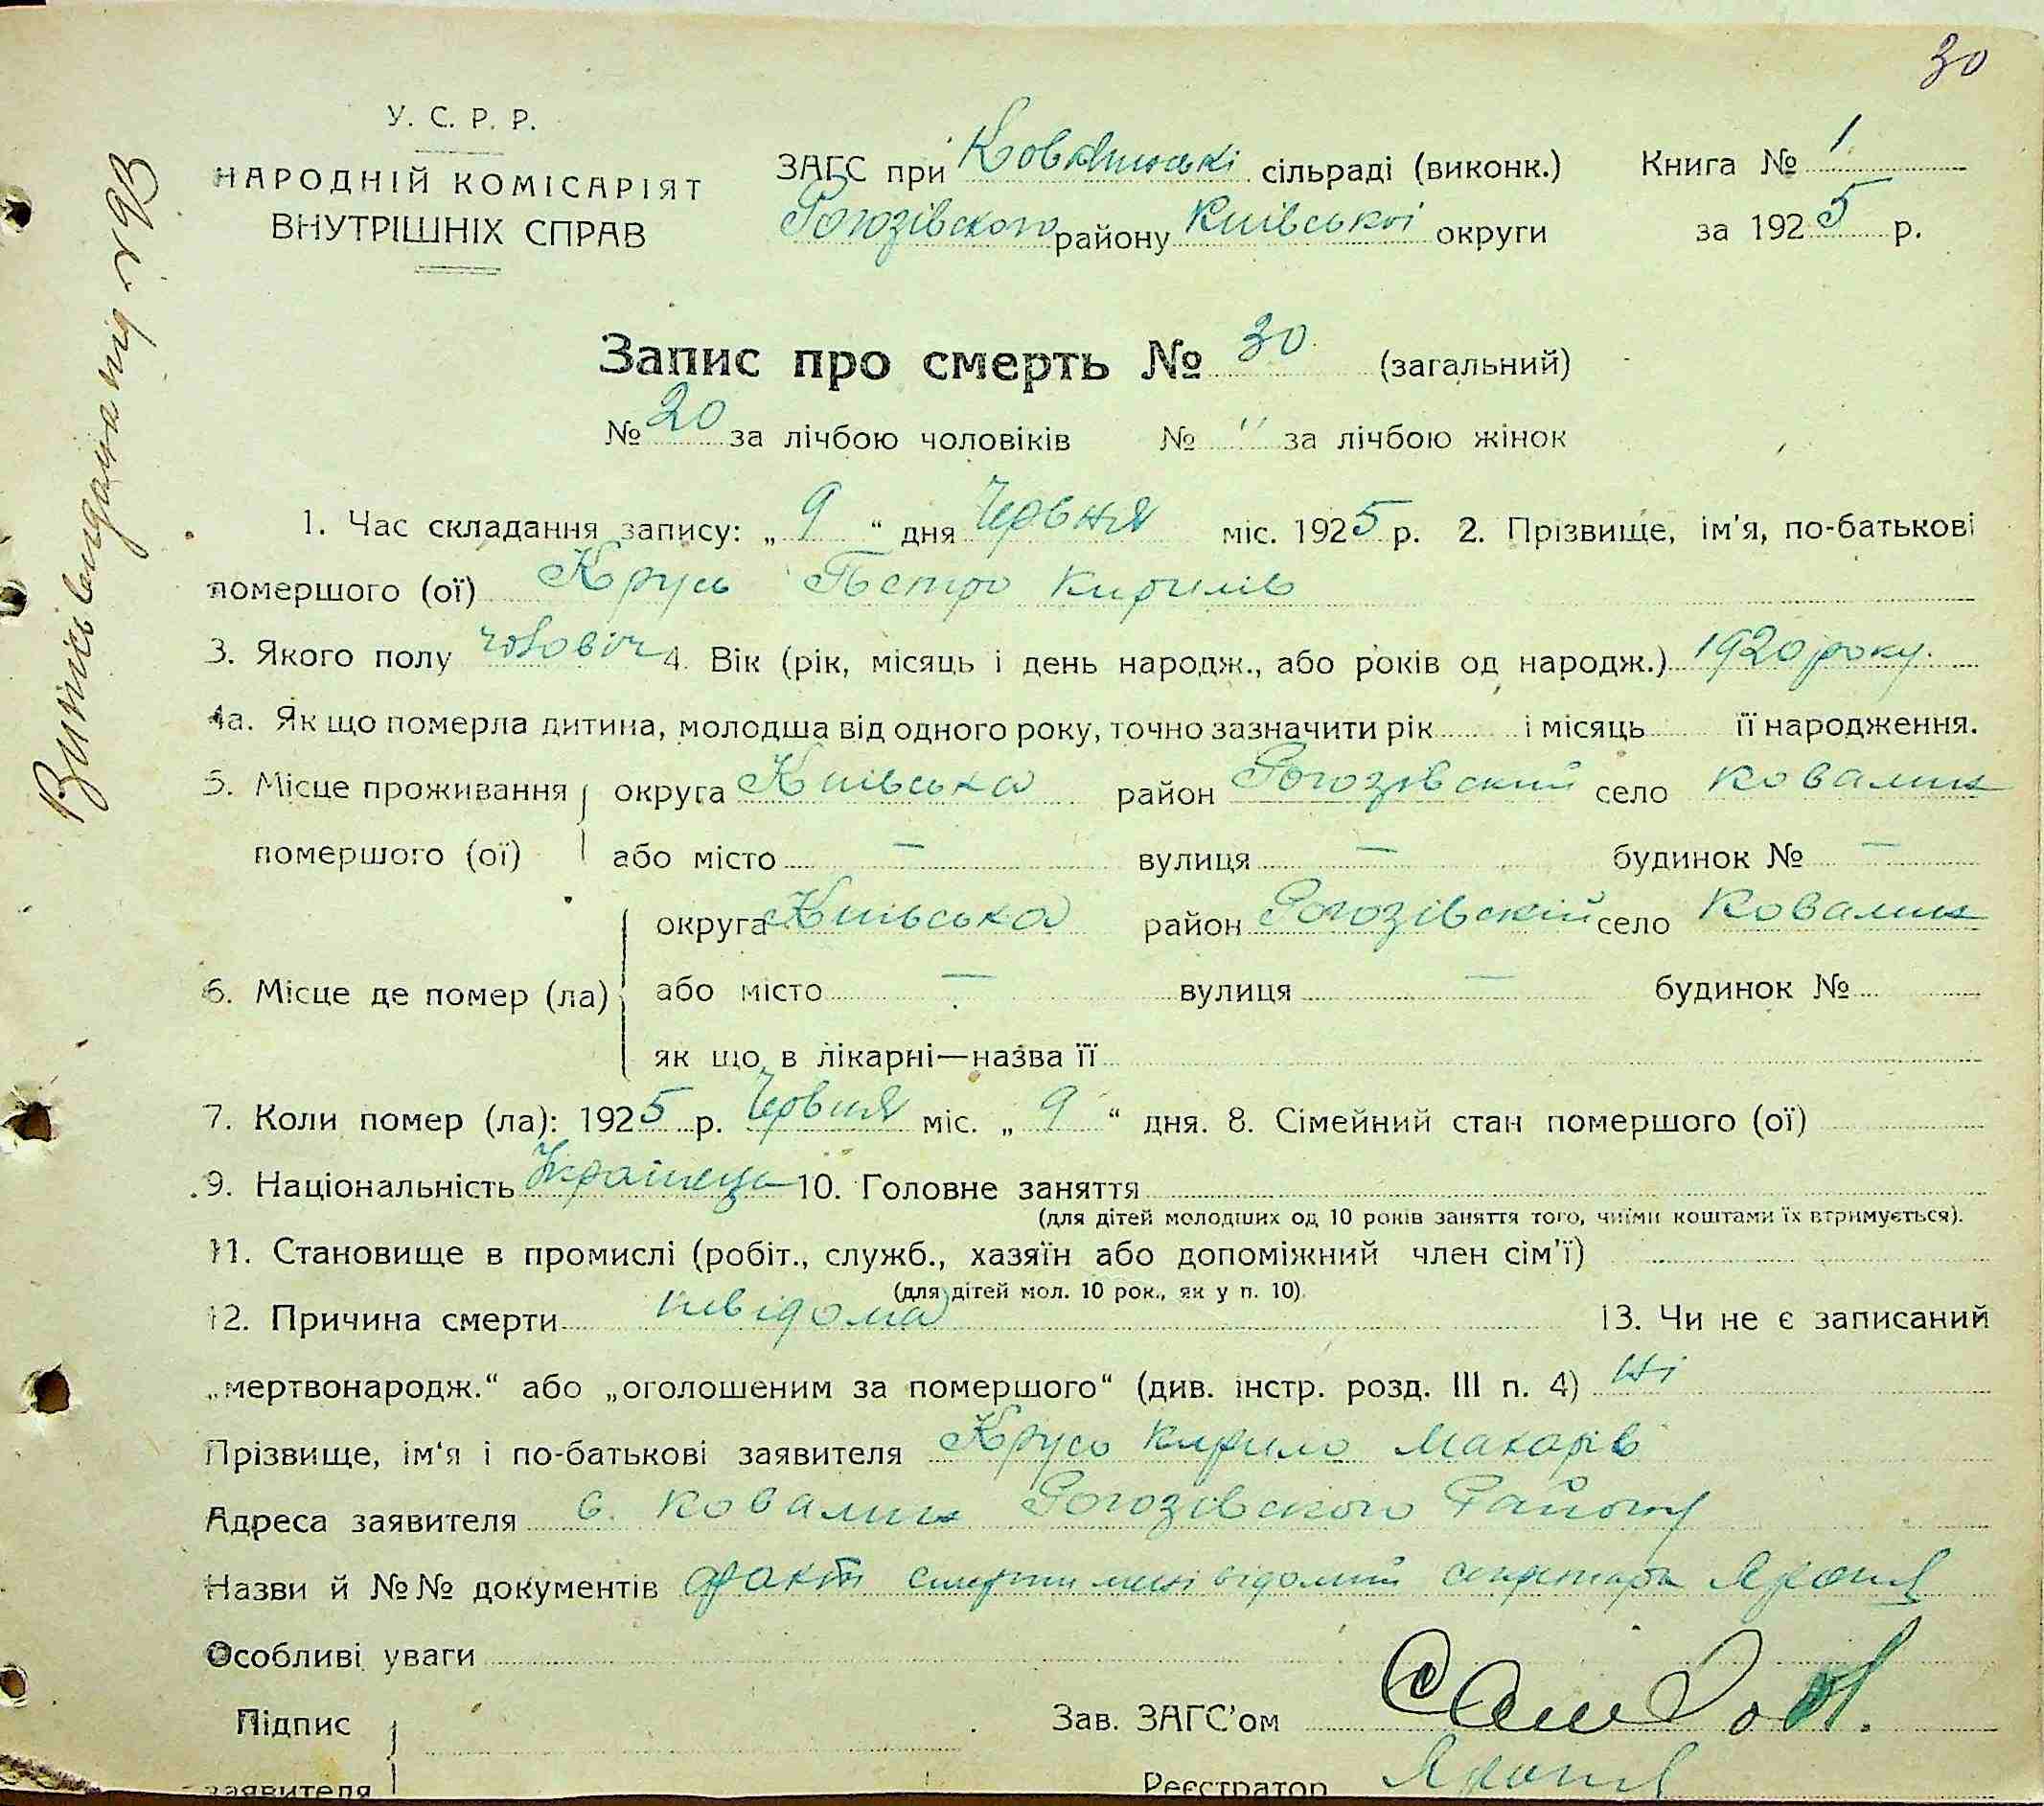 30
У. С. Р. Р.
НАРОДНІЙ КОМІСАРІЯТ
ВНУТРІШНІХ СПРАВ
ЗАГС при Ковалинські сільраді (виконк.)
Рогозівского району Київської округи
Книга № 1
за 1925 р.
Випись видана під № 93
Запис про смерть № 30 (загальний)
№ 20 за лічбою чоловіків № " за лічбою жінок
1. Час складання запису: „ 9 “ дня Червня міс. 1925 р. 2. Прізвище, ім'я, по-батькові
помершого (ої) Крусь Петро Кирилів
3. Якого полу чоловіч 4. Вік (рік, місяць і день народж., або років од народж.) 1920 року.
4а. Як що померла дитина, молодша від одного року, точно зазначити рік і місяць її народження.
5. Місце проживання округа Київська район Рогозівский село Ковалин
помершого (ої) або місто — вулиця — будинок № —
округа Київська район Рогозівский село Ковалин
6. Місце де помер (ла) або місто — вулиця — будинок №
як що в лікарні—назва її
7. Коли помер (ла): 1925 р. Червня міс. „ 9 “ дня. 8. Сімейний стан помершого (ої)
9. Національність Українець 10. Головне заняття
(для дітей молодших од 10 років заняття того, чиїми коштами їх втримується).
11. Становище в промислі (робіт., служб., хазяїн або допоміжний член сім'ї)
(для дітей мол. 10 рок., як у п. 10).
12. Причина смерти невідома 13. Чи не є записаний
„мертвонародж.“ або „оголошеним за помершого“ (див. інстр. розд. III п. 4) Ні
Прізвище, ім'я і по-батькові заявителя Крусь Кирило Макарів
Адреса заявителя с. Ковалин Рогозівского Району
Назви й №№ документів факт смерти мені відомий секретарь
Особливі уваги
Підпис
заявителя
Зав. ЗАГС'ом
Реєстратор